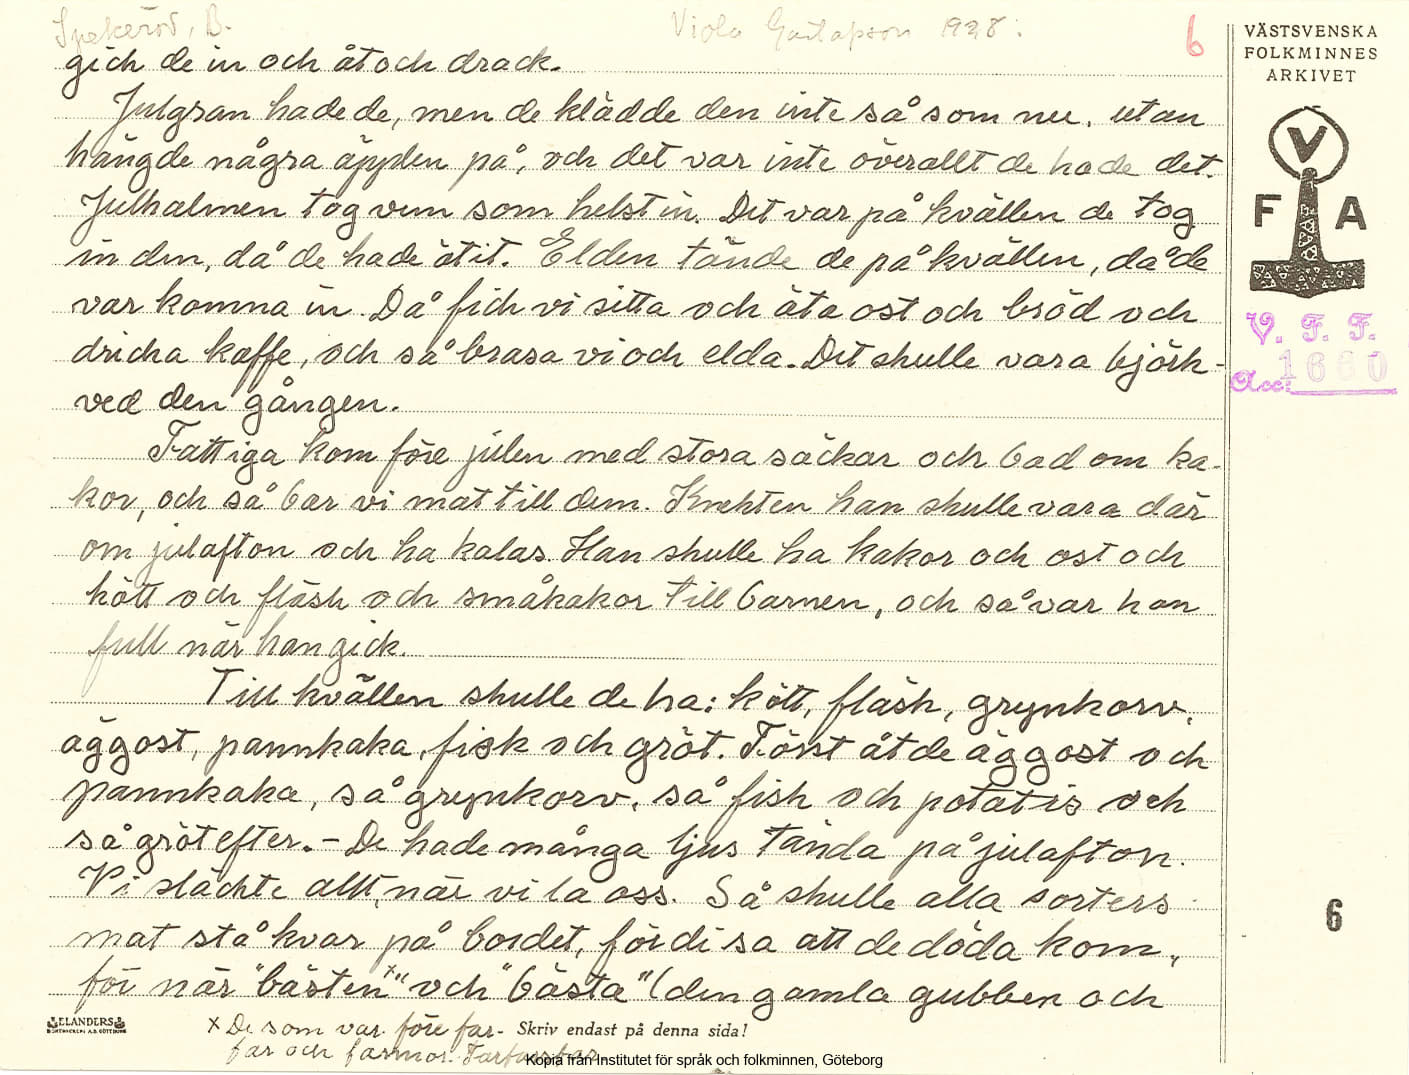 Spekeröd, B. Viola Gustafson 1928. 6
gick de in och åt och drack.
Julgran hade de, men de klädde den inte så som nu, utan
hängde några äpplen på, och det var inte överallt de hade det.
Julhalmen tog vem som helst in. Det var på kvällen de tog
in den, då de hade ätit. Elden tände de på kvällen, då de
var komna in. Då fick vi sitta och äta ost och bröd och
dricka kaffe, och så brasa vi och elda. Det skulle vara björk-
ved den gången.
Fattiga kom före julen med stora säckar och bad om ka-
kor, och så bar vi mat till dem. Knekten han skulle vara där
om julafton och ha kalas. Han skulle ha kakor och ost och
kött och fläsk och småkakor till barnen, och så var han
full när han gick.
Till kvällen skulle de ha: kött, fläsk, grynkorv,
äggost, pannkaka, fisk och gröt. Först åt de äggost och
pannkaka, så grynkorv, så fisk och potatis och
så gröt efter. - De hade många ljus tända på julafton.
Vi släckte allt, när vi la oss. Så skulle alla sorters
mat stå kvar på bordet, för di sa att de döda kom,
för när "bästen"x och "bästa" (den gamla gubben och
x De som var före far-
far och farmor. Farfarsfar.
ELANDERS
Skriv endast på denna sida!
Kopia från Institutet för språk och folkminnen, Göteborg
VÄSTSVENSKA
FOLKMINNES
ARKIVET
V
F A
V. F. F.
Acc: 1660
6